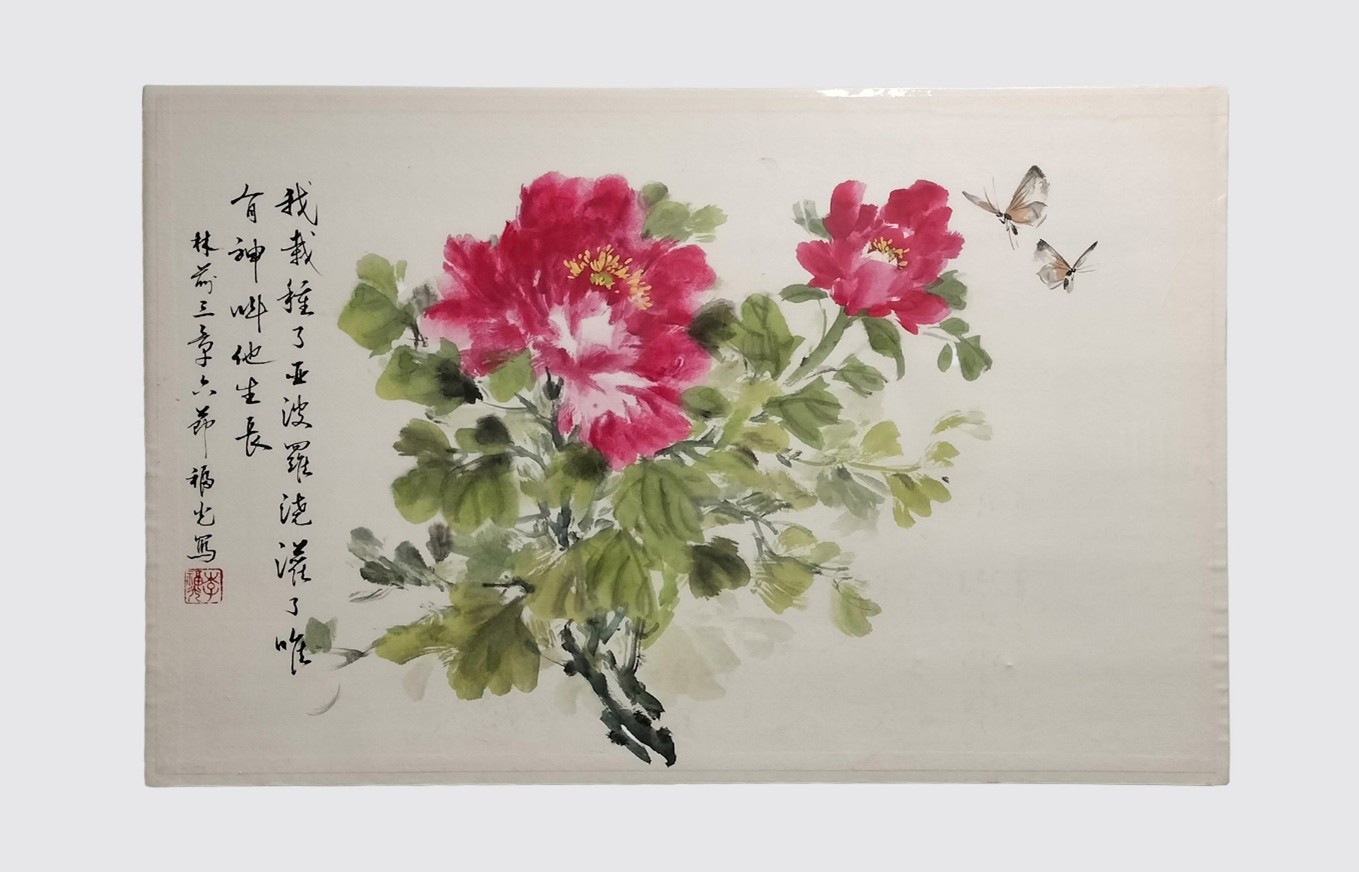 我栽種了亚波羅澆灌了唯
有神叫他生長
林前三章六節 福光寫